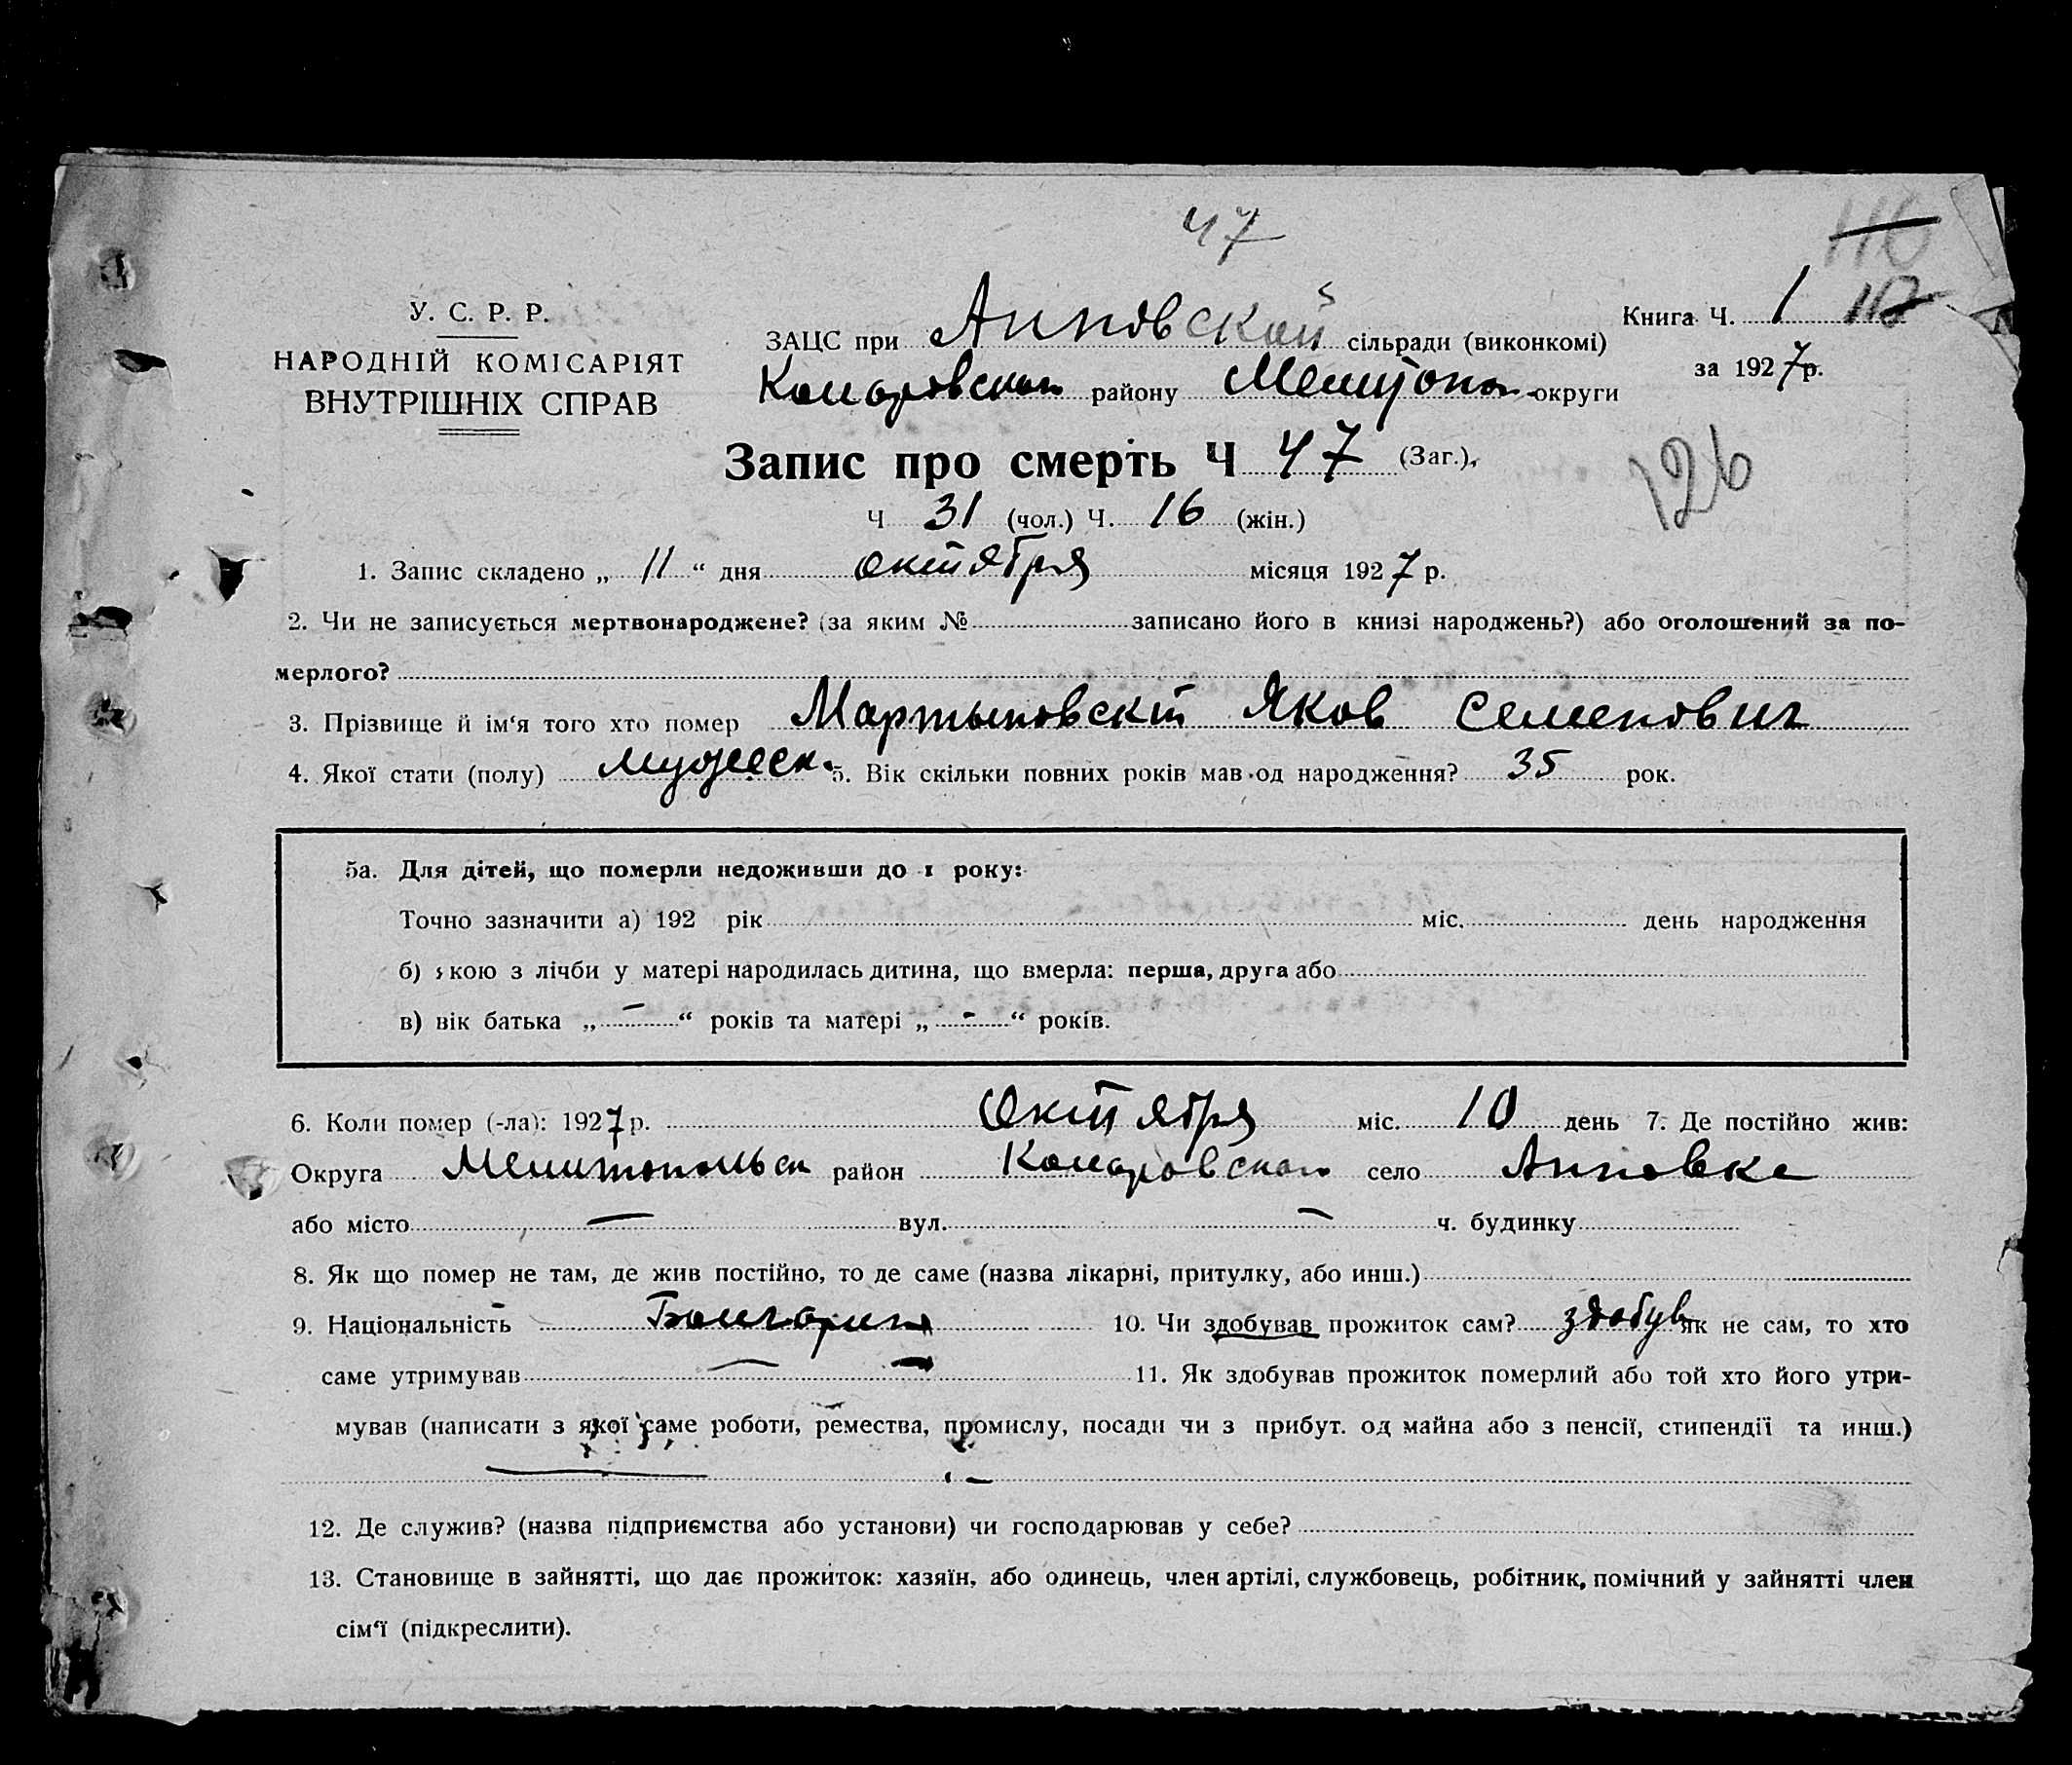 47
110
У. С. Р. Р.
НАРОДНІЙ КОМІСАРІЯТ
ВНУТРІШНІХ СПРАВ
ЗАЦС при Анновской сільради (виконкомі)
Книга Ч. 1
району Мелитопол округи
за 1927 р.
Запис про смерть Ч 47 (Заг.),
126
Ч 31 (чол.) Ч. 16 (жін.)
1. Запис складено „ 11 “ дня октября місяця 1927 р.
2. Чи не записується мертвонароджене? (за яким № записано його в книзі народжень?) або оголошений за по-
мерлого?
3. Прізвище й ім‘я того хто помер Мартыновскій Яков Семенович
4. Якої стати (полу) мужеск. 5. Вік скільки повних років мав од народження? 35 рок.
5а. Для дітей, що померли недоживши до 1 року:
Точно зазначити а) 192 рік міс. день народження
б) якою з лічби у матері народилась дитина, що вмерла: перша, друга або
в) вік батька „ – “ років та матері „ – “ років.
6. Коли помер (-ла): 1927 р. Октября міс. 10 день 7. Де постійно жив:
Округа Мелитопольск район село Анновке
або місто — вул. — ч. будинку
8. Як що помер не там, де жив постійно, то де саме (назва лікарні, притулку, або инш.)
9. Національність Болгарин 10. Чи здобував прожиток сам? здобув Як не сам, то хто
саме утримував — 11. Як здобував прожиток померлий або той хто його утри-
мував (написати з якої саме роботи, ремества, промислу, посади чи з прибут. од майна або з пенсії, стипендії та инш.)
12. Де служив? (назва підприємства або установи) чи господарював у себе?
13. Становище в зайнятті, що дає прожиток: хазяїн, або одинець, член артілі, службовець, робітник, помічний у зайнятті член
сім‘ї (підкреслити).